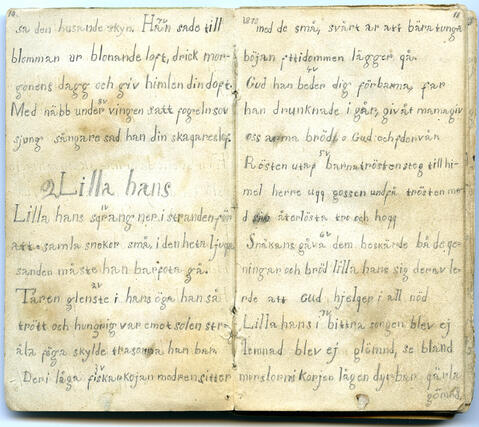 sa den husande skyn. Han sade till
blomman ur blonande loft, drick mor-
gonens dagg och giv himlen din doft.
5V
Med näbb under vingen satt fogeln sov
sjung sångare sad han din skapares lof.
2 Lilla hans
1V
Lilla hans sprang ner i stranden för
att samla snoker små, i den heta ljusa
sanden måste han barfota gå.
2V
Tåren glenste i hans öga han så
trött och hungrig var emot solen str-
åla föga skylde trasorna han bar
3V
Den i låga fiskarkojan modren sitter
1810
11
med de små, svårt är att bära tunga
böjan fttidommen lägger på.
4V
Gud han beder dig förbarma, far
han drunknade i går, giv åt mama giv
oss arma bröd, o Gud och
5V
Rösten utaf barnatrösten steg till hi-
mel herre ugg gossen undfå trösten mo
d återlösta tro och hopp
6V
Snåkans gåva dem beskärde både pe-
ningar och bröd lilla hans sig derav le-
rde att Gud hjelper i all nöd
7V
Lilla hans i bittra sorgen blev ej
lemnad blev ej glömd, se bland
i korjen lågen dyrbar gärla
gömd.